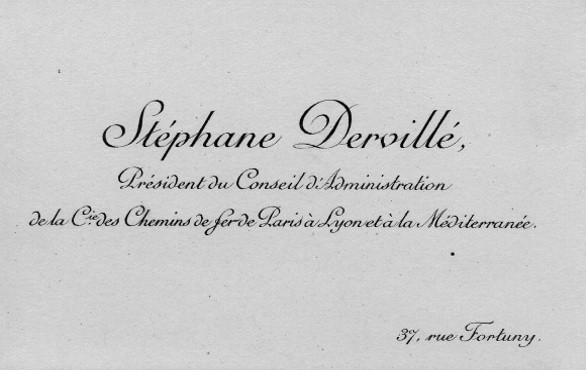 Stéphane Dervillé,
Président du Conseil d'Administration
de la Cie des Chemins de fer de Paris à Lyon et à la Méditerranée.
37, rue Fortuny.